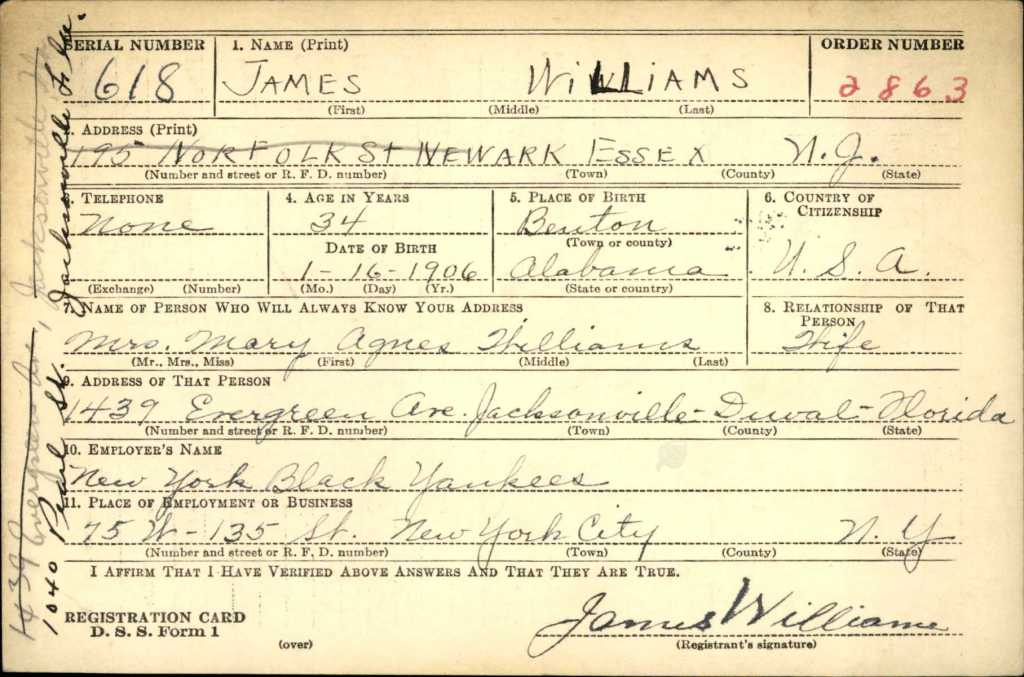 SERIAL NUMBER 1. NAME (Print) ORDER NUMBER
618 JAMES WILLIAMS 2863
(First) (Middle) (Last)
2. ADDRESS (Print)
195 NORFOLK St NEWARK ESSEX N.J.
(Number and street or R. F. D. number) (Town) (County) (State)
3. TELEPHONE 4. AGE IN YEARS 5. PLACE OF BIRTH 6. COUNTRY OF CITIZENSHIP
None 34 Benton
(Town or county)
DATE OF BIRTH
1-16-1906 Alabama U. S. A.
(Exchange) (Number) (Mo.) (Day) (Yr.) (State or country)
7. NAME OF PERSON WHO WILL ALWAYS KNOW YOUR ADDRESS 8. RELATIONSHIP OF THAT PERSON
Mrs. Mary Agnes Williams Wife
(Mr., Mrs., Miss) (First) (Middle) (Last)
9. ADDRESS OF THAT PERSON
1439 Evergreen Ave. Jacksonville-Duval-Florida
(Number and street or R. F. D. number) (Town) (County) (State)
10. EMPLOYER'S NAME
New York Black Yankees
11. PLACE OF EMPLOYMENT OR BUSINESS
75 W-135 St. New York City N. Y
(Number and street or R. F. D. number) (Town) (County) (State)
I AFFIRM THAT I HAVE VERIFIED ABOVE ANSWERS AND THAT THEY ARE TRUE.
REGISTRATION CARD
D. S. S. Form 1
(over)
James Williams
(Registrant's signature)
1439 Evergreen Ave, Jacksonville
1040 Pearl St. Jacksonville Fla.